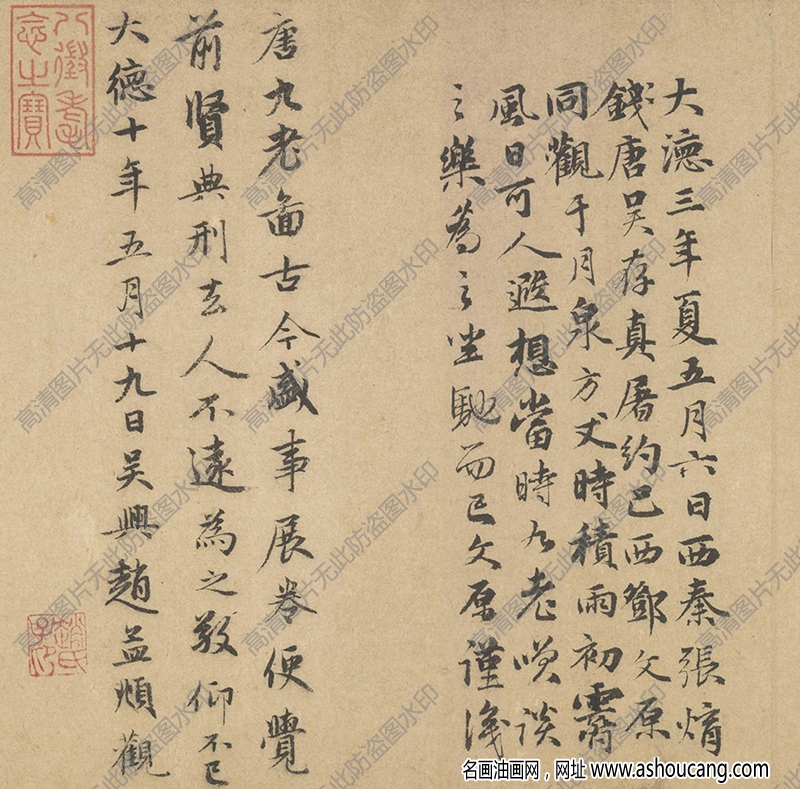 大德三年夏五月六日西秦張熵
錢唐吴存真屠約巴西鄧文原
同觀于月泉方丈時積雨初霽
風日可人遐想當時九老笑談
之樂為之坐馳而已文原謹識
唐九老啚古今盛事展卷便覺
前賢典刑去人不遠為之敬仰不已
大德十年五月十九日吴興趙孟頫觀
八徵耄
念之寳
趙氏
子印
高清图片无此防盗图水印
名画油画网，网址 www.ashoucang.com